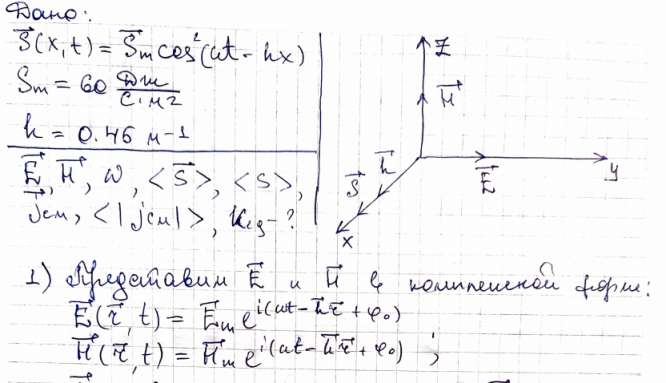 Дано:
S⃗(x,t) = S⃗m cos²(ωt - kx)
Sm = 60 Дж/(с·м2)
k = 0.46 м-1
E⃗, H⃗, ω, <S⃗>, <S>,
j⃗см, <|jсм|>, Kед - ?
Z
H⃗
k⃗
S⃗
E⃗
y
x
1) Представим E⃗ и H⃗ в комплексной форме:
E⃗(r⃗,t) = E⃗m e^i(ωt - k⃗r⃗ + φ₀)
H⃗(r⃗,t) = H⃗m e^i(ωt - k⃗r⃗ + φ₀) ;